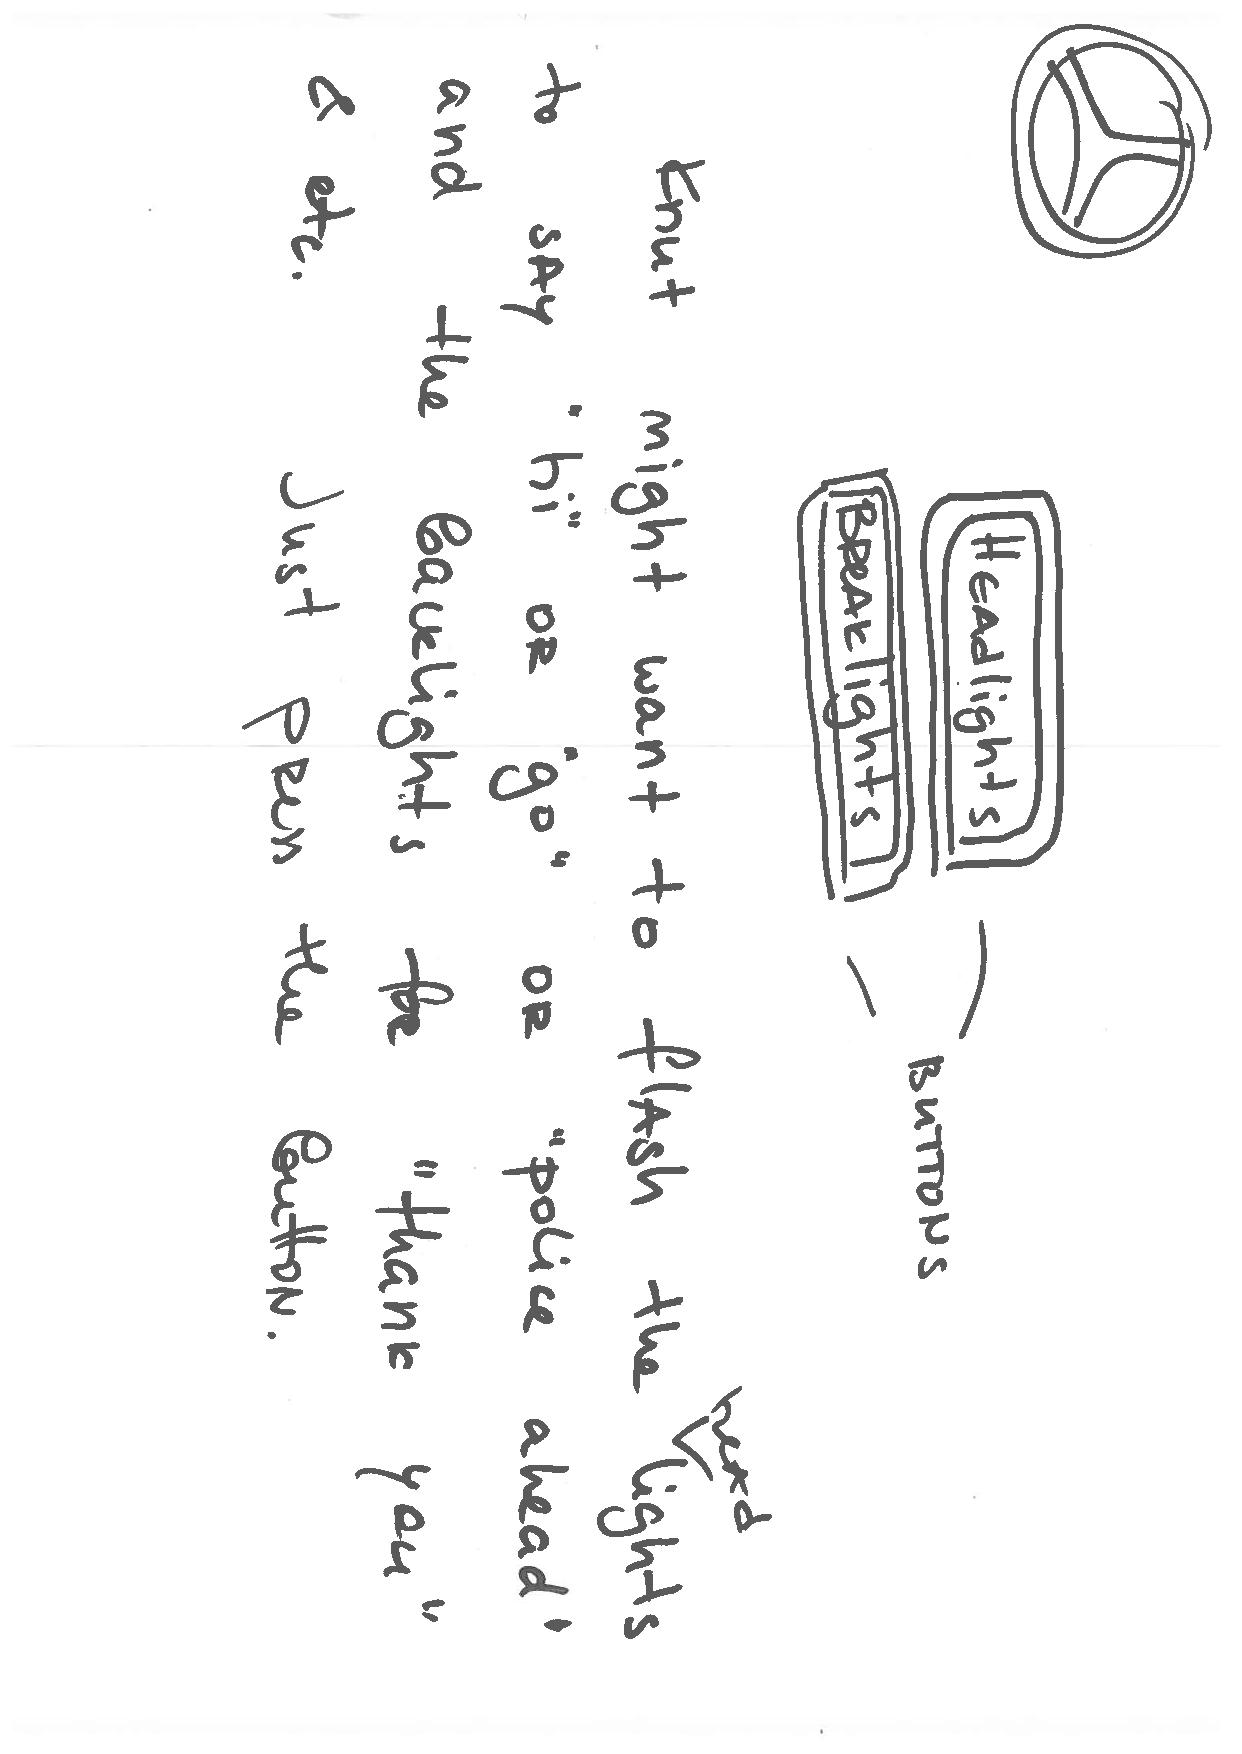 Headlights
BREAKlights
BUTTONS
head
Knut might want to flash the lights
to say "hi" or "go" or "police ahead"
and the backlights for "thank you"
& etc. Just press the button.